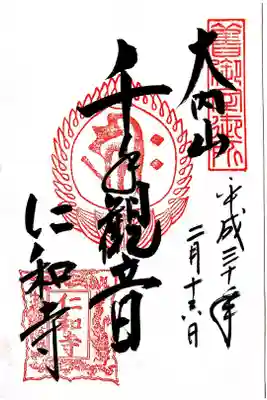 大内山
平成三十年
二月十六日
千手観音
仁和寺
仁和寺